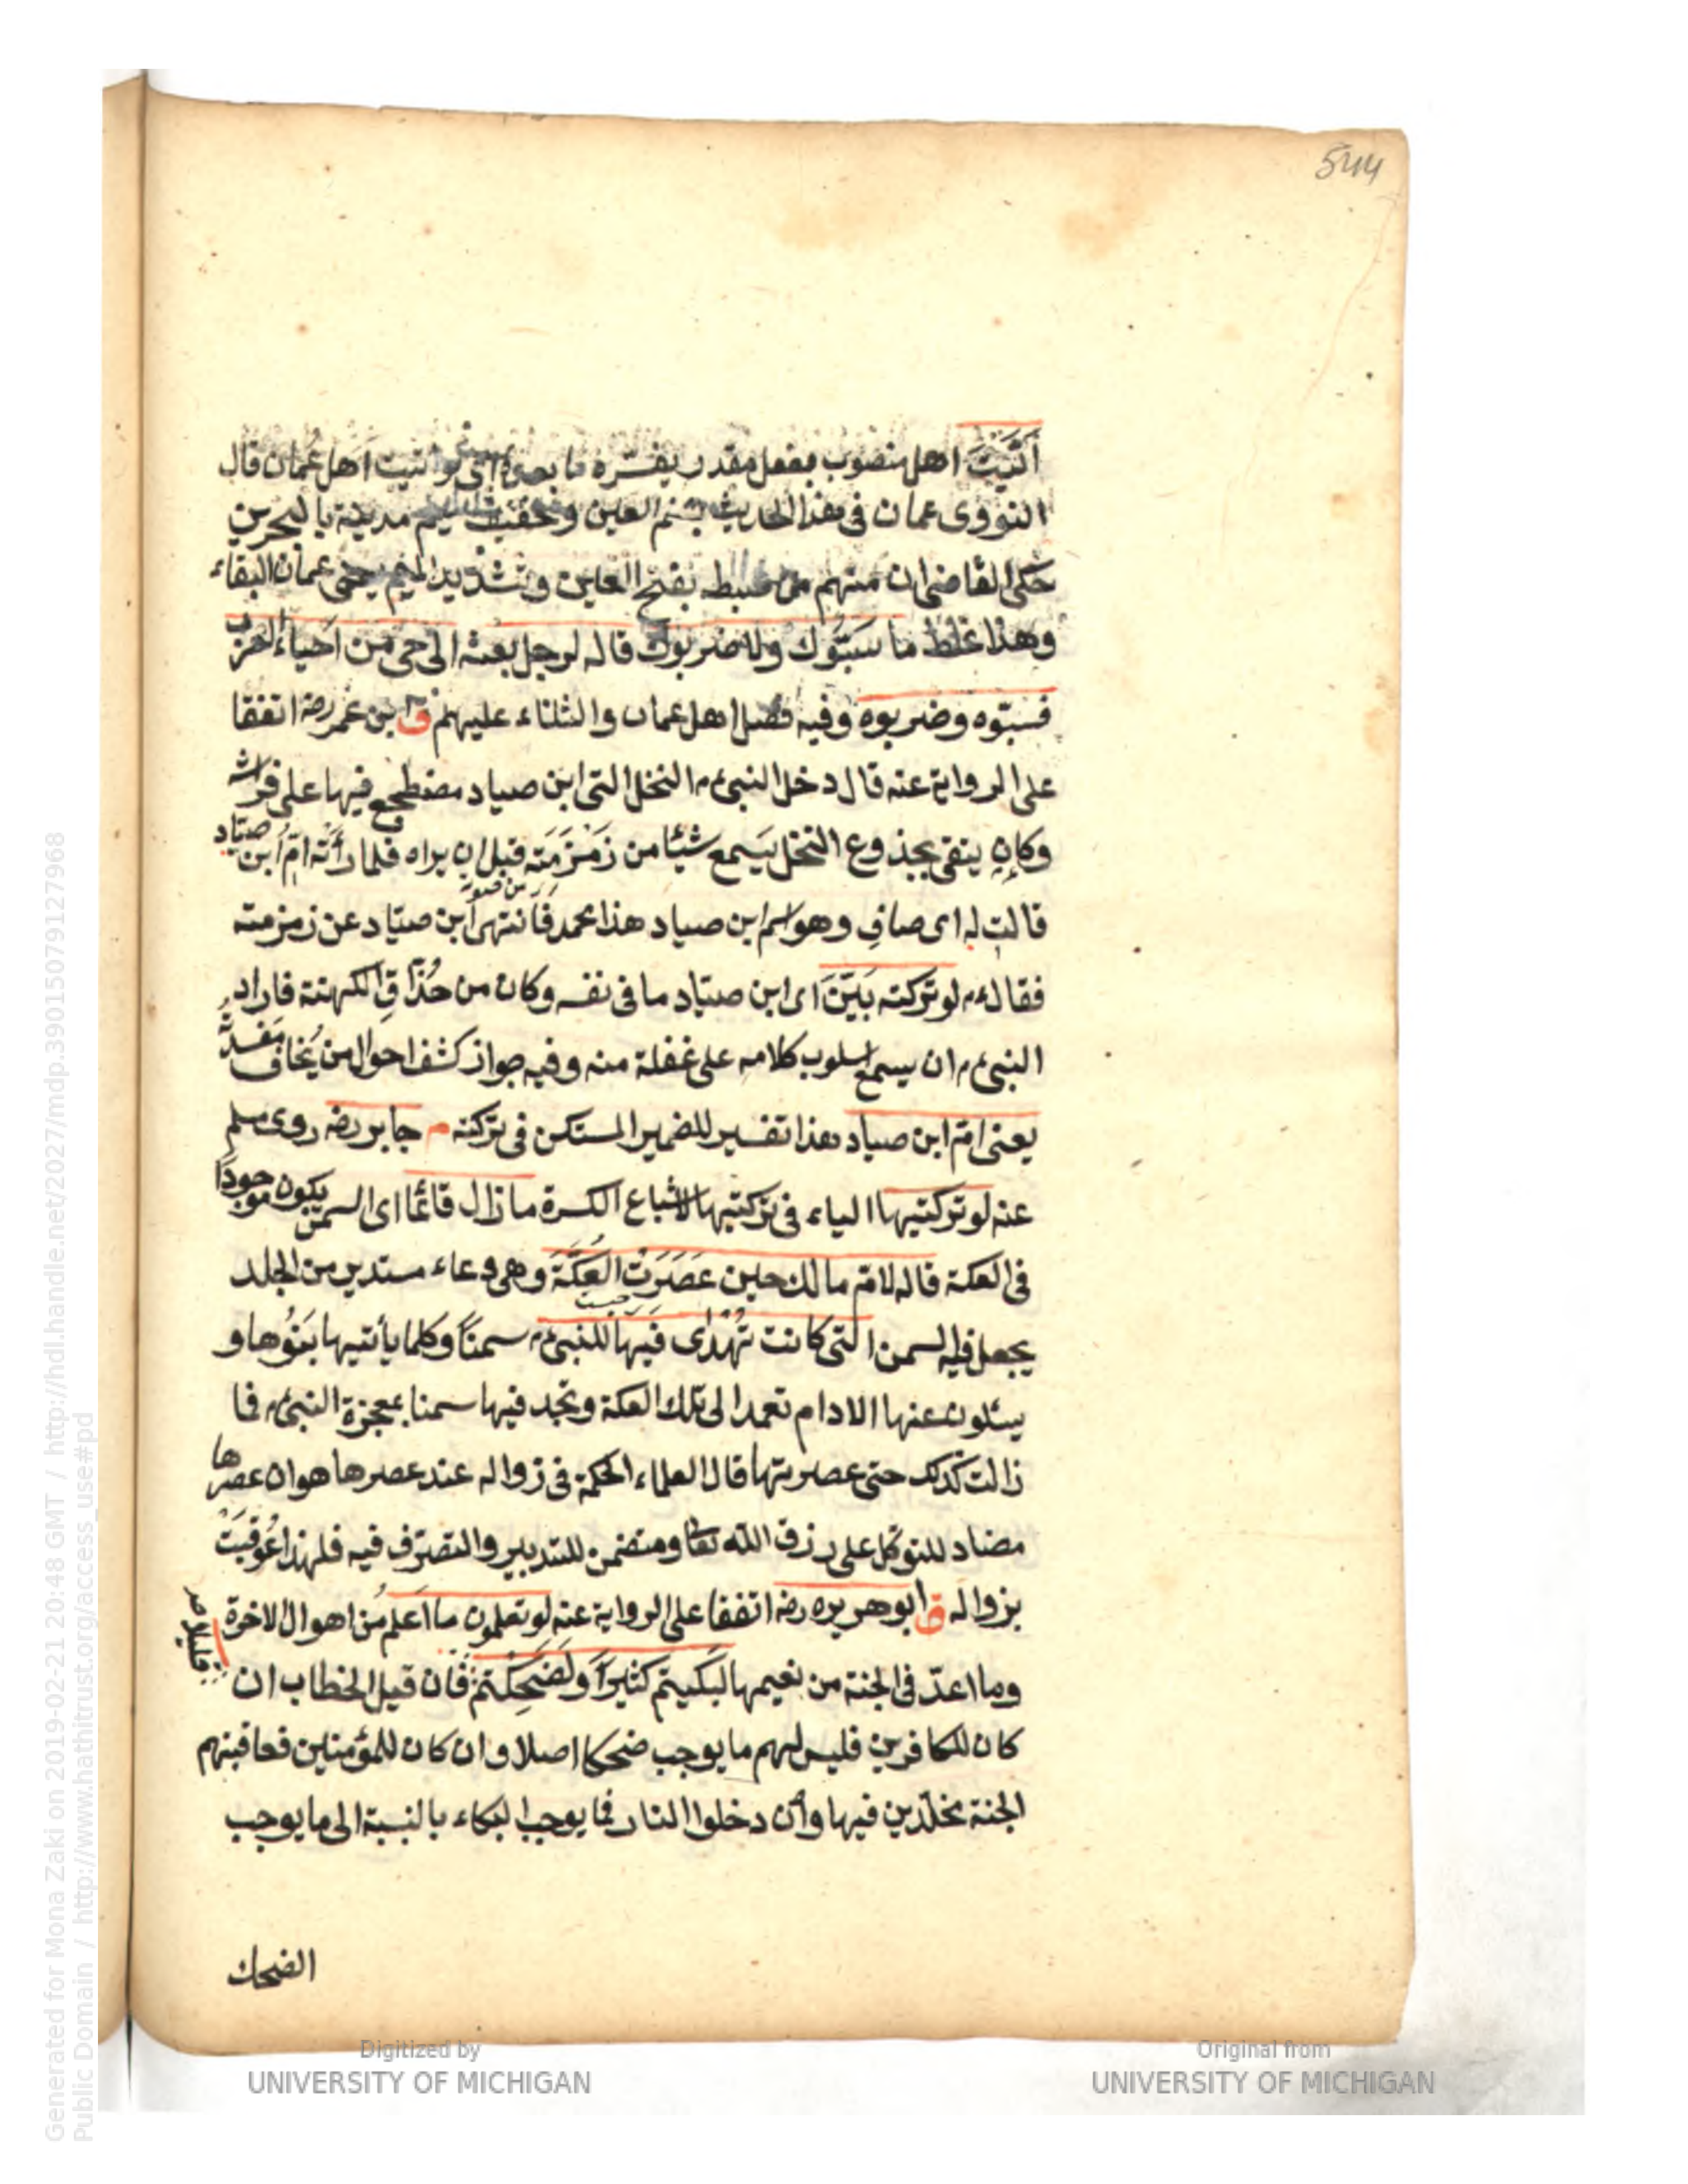 544
أتَيْتَ اهل منصوب بفعل مقدر يفسره ما بعده اى لو اتيت اهل عُمان قال
النووى عمان فى هذا الحديث بضم العين وتخفيف الميم مدينة بالبحرين
حكى القاضى ان منهم من ضبطه بفتح العاين وتشديد الميم يعنى عمان البلقاء
وهذا غلط ما سَبّوُك ولا ضربوك قاله لرجل بعثه الى حى من احياء العرب
فسبّوه وضربوه وفيه فضل اهل عمان والثناء عليهم ق ابن عمر رضه اتفقا
على الرواية عنه قال دخل النبى م النخل التى ابن صياد مضطجع فيها على فراشه
وكان يتقى بجذوع النخل يَسمع شيئا من زَمْزَمَته قبل ان يراه فلما رأَتْه امّ ابن صيّاد
قالت له اى صافِ وهو اسم ابن صياد هذا محمد فانتهى ابن صيّاد عن زمزمته
فقال م لو تَرَكَته بَيَّنَ اى ابن صيّاد ما فى نفسه وكان من حُذّاقِ الكهنة فاراد
النبى م ان يسمع اسلوب كلامه على غفلة منه وفيه جواز كشف احوال من يُخاف مفسدته
يعنى امّ ابن صياد هذا تفسير للضمير المستكن فى تركته م جابر رضه روى مسلم
عنه لو تركتيها الياء فى تركتيها لاشباع الكسرة ما زال قائمًا اى السمن يكون موجودًا
فى العكة قاله لامّ مالك حين عَصَرَتْ العُكَّةَ وهى وعاء مستدير من الجلد
يجعل فيه السمن التى كانت تُهْدى فيها للنبى م سمناً وكلما يأتيها بَنُوها و
يسئلون عنها الادام تعمد الى تلك العكة وتجد فيها سمنا بمعجزة النبى م فما
زالت كذلك حتى عصرتها قال العلماء الحكمة فى زواله عند عصرها هو ان عصرها
مضاد للتوكل على رزق الله تعا ومتضمن للتدبير والتصرّف فيه فلهذا عُوقِبَتْ
بزواله ق ابو هريره رضه اتفقا على الرواية عنه لو تعلمون ما اعلم من اهوال الاخرة
وما اعدّ فى الجنة من نعيمها لَبَكيتم كثيرًا ولَضَحِكتم فان قيل الخطاب ان
قليلا
كان للكافرين فليس لهم ما يوجب ضحكا اصلا وان كان للمؤمناين فعاقبتهم
الجنة مخلّدين فيها وان دخلوا النار فما يوجب البكاء بالنسبة الى ما يوجب
الضحك
Digitized by
UNIVERSITY OF MICHIGAN
Original from
UNIVERSITY OF MICHIGAN
Generated for Mona Zaki on 2019-02-21 20:48 GMT / http://hdl.handle.net/2027/mdp.39015079127968
Public Domain / http://www.hathitrust.org/access_use#pd